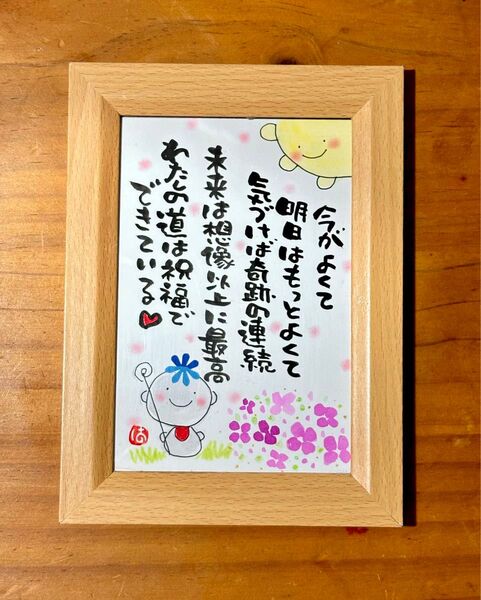 今がよくて
明日はもっとよくて
気づけば奇跡の連続
未来は想像以上に最高
わたしの道は祝福で
できている♥
は